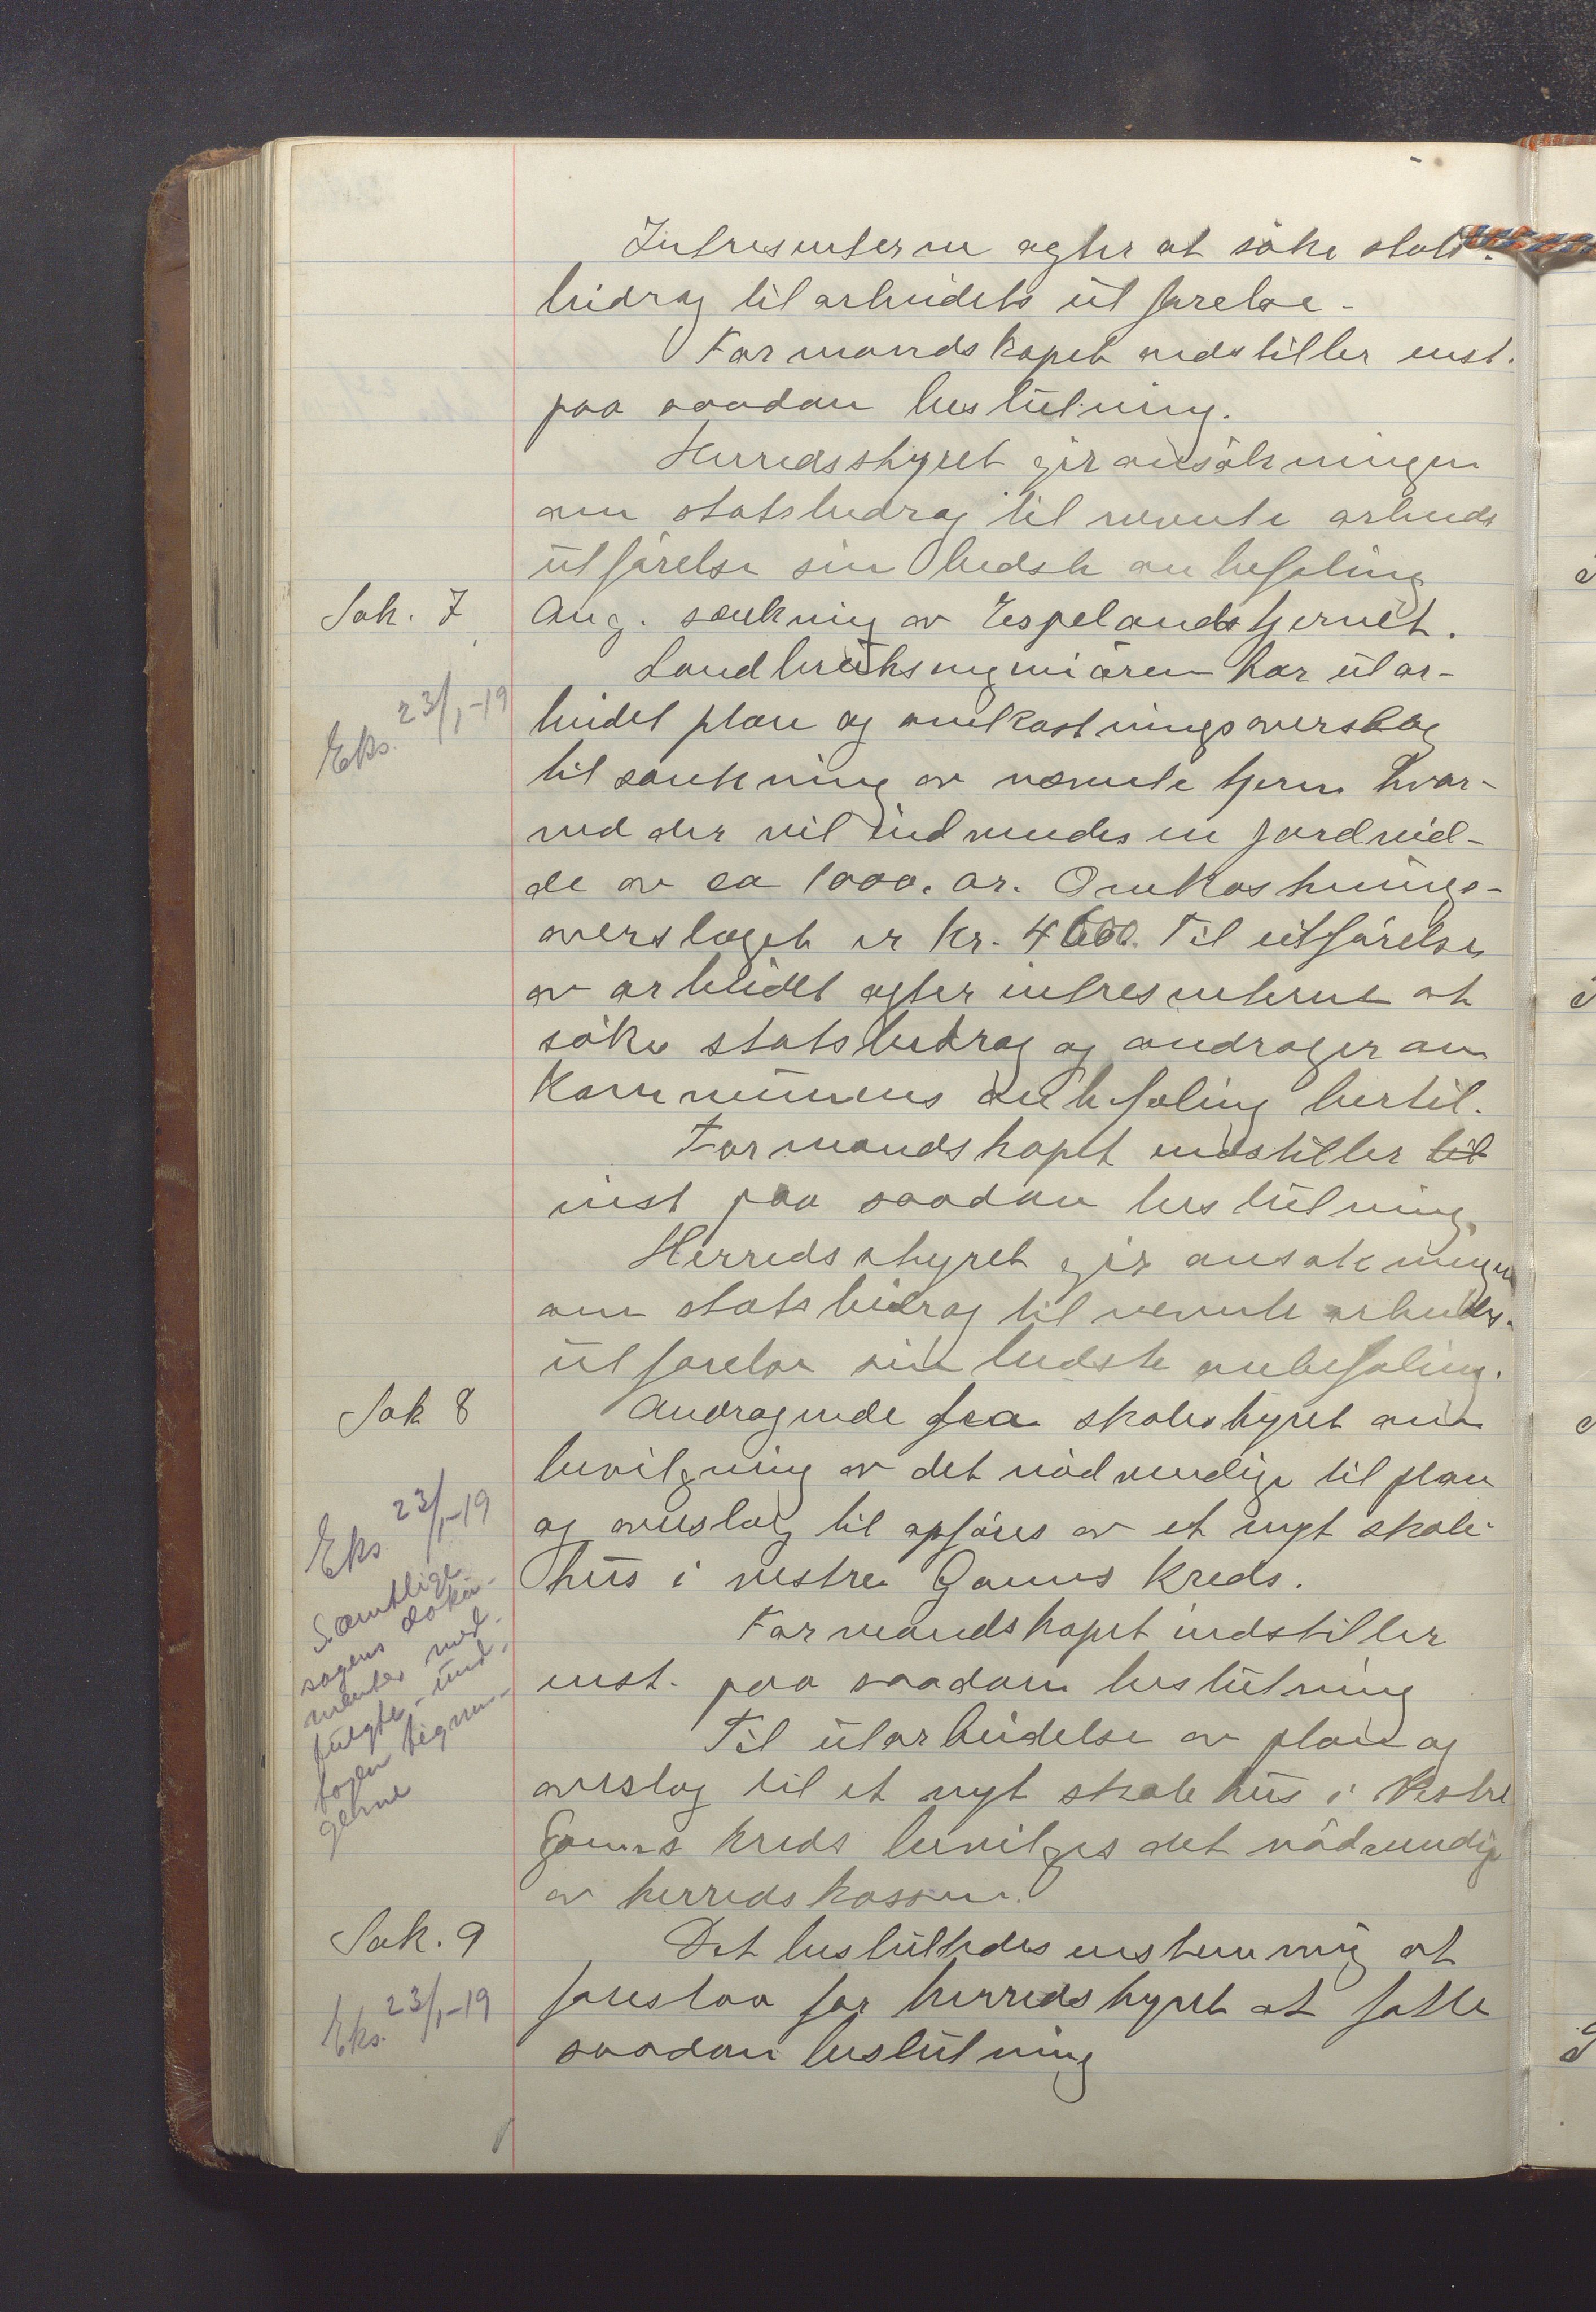 Intresenterne agter at söke stats-
bidrag til arbeidets utförelse.
Formandskapet indstiller enst.
paa saadan beslutning.
Herredsstyret gir ansökningen
om statsbidrag til nevnte arbeids
utförelse sin bedste anbefaling
Sak. 7
Ang. sænkning av Espelandstjernet.
Landbruksingeniören har utar-
Eks. 23/1-19
beidet plan og omkostningsoverslag
til sænkning av nævnte tjern hvor-
ved der vil indvindes en jordvid-
de av ca 1000. ar. Omkostnings-
overslaget er kr. 4600. Til utförelse
av arbeidet agter intresenterne at
söke statsbidrag og andrager om
Kommunens anbefaling hertil.
Formandskapet indstiller til
enst paa saadan beslutning.
Herredsstyret gir ansökningen
om statsbidrag til nevnte arbeids-
utförelse sin bedste anbefaling.
Sak 8
Andragende fra skolestyret om
bevilgning av det nödvendige til plan
og overslag til opförs av et nyt skole-
hus i vestre Gauns kreds.
Eks 23/1-19
Samtlige
sagens doku-
menter med-
fulgte, und-
tagen tegnin-
gerne
Formandskapet indstiller
enst. paa saadan beslutning
Til utarbeidelse av plan og
overslag til et nyt skolehus i Vestre
Gauns kreds bevilges det nödvendige
av herredskassen.
Sak. 9
Det besluttedes enstemmig at
Eks. 23/1-19
foreslaa for herredsstyret at fatte
saadan beslutning